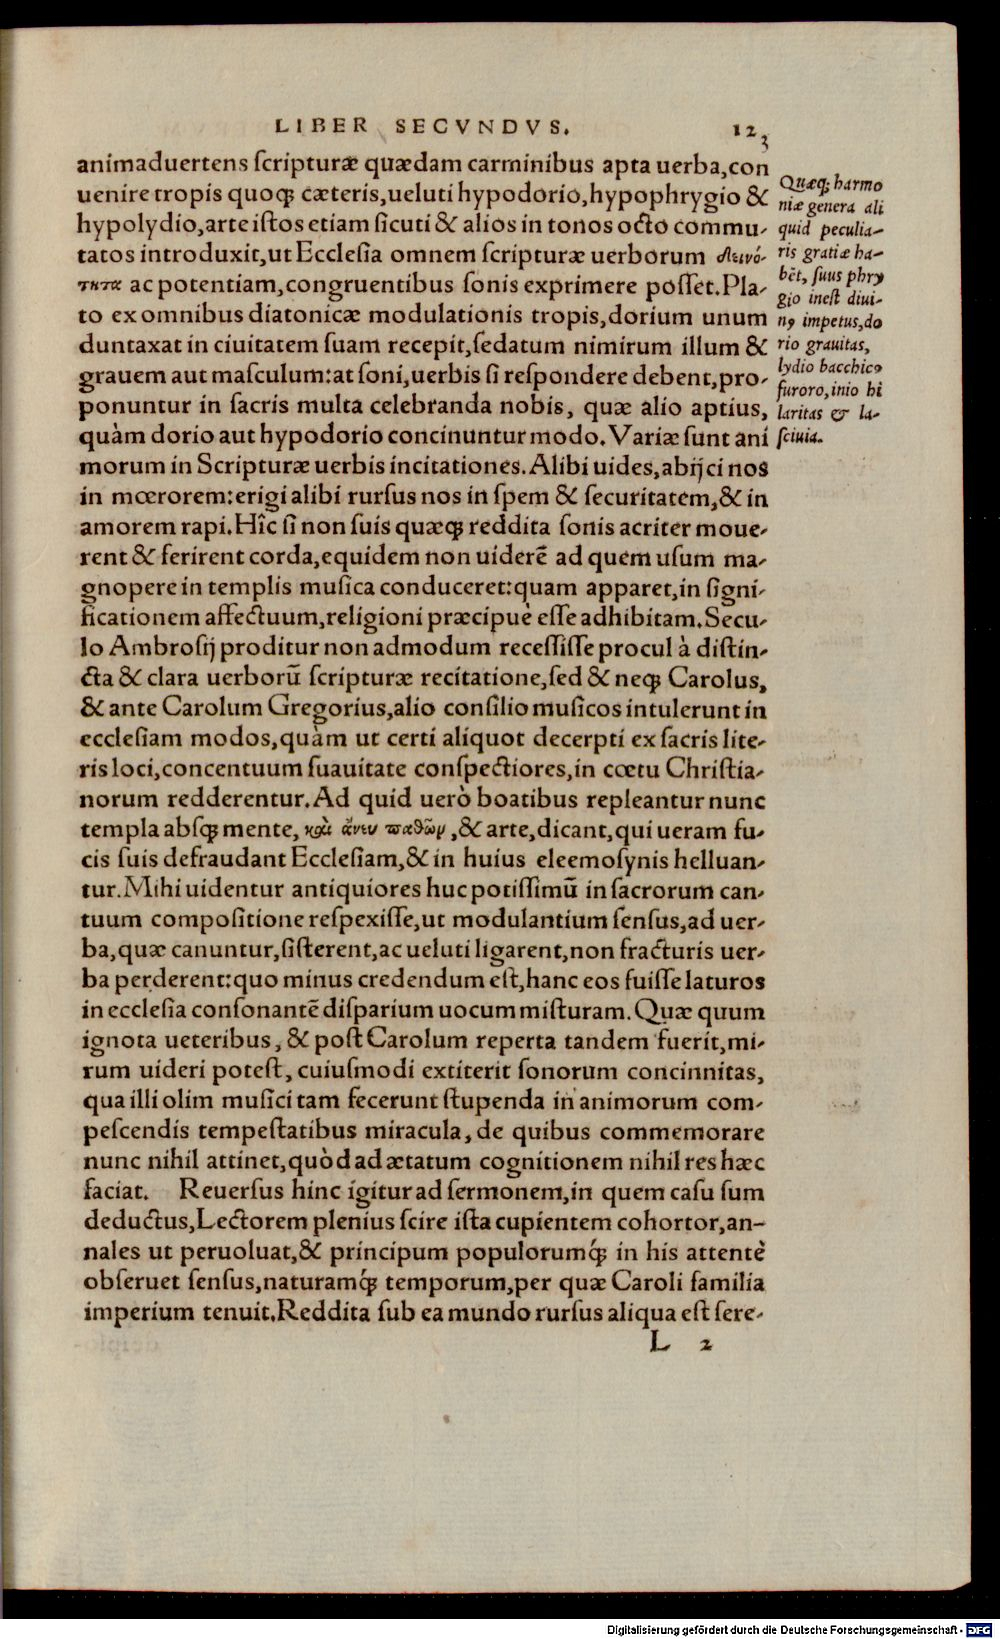 LIBER SECVNDVS. 123
animaduertens ſcripturæ quædam carminibus apta uerba,con
uenire tropis quoqꝫ cæteris,ueluti hypodorio,hypophrygio &
hypolydio,arte iſtos etiam ſicuti & alios in tonos octo commu-
tatos introduxit,ut Eccleſia omnem ſcripturæ uerborum δεινό-
τητα ac potentiam,congruentibus ſonis exprimere poſſet.Pla-
to ex omnibus diatonicæ modulationis tropis,dorium unum
duntaxat in ciuitatem ſuam recepit,ſedatum nimirum illum &
grauem aut maſculum:at ſoni,uerbis ſi reſpondere debent,pro-
ponuntur in ſacris multa celebranda nobis, quæ alio aptius,
quàm dorio aut hypodorio concinuntur modo.Variæ ſunt ani
morum in Scripturæ uerbis incitationes.Alibi uides,abijci nos
in mœrorem:erigi alibi rurſus nos in ſpem & ſecuritatem,& in
amorem rapi.Hîc ſi non ſuis quæqꝫ reddita ſonis acriter moue-
rent & ferirent corda,equidem non uiderē ad quem uſum ma-
gnopere in templis muſica conduceret:quam apparet,in ſigni-
ficationem affectuum,religioni præcipuè eſſe adhibitam.Secu-
lo Ambroſij proditur non admodum receſſiſſe procul à diſtin-
cta & clara uerborū ſcripturæ recitatione,ſed & neqꝫ Carolus,
& ante Carolum Gregorius,alio conſilio muſicos intulerunt in
eccleſiam modos,quàm ut certi aliquot decerpti ex ſacris lite-
ris loci,concentuum ſuauitate conſpectiores,in cœtu Chriſtia-
norum redderentur.Ad quid uerò boatibus repleantur nunc
templa absqꝫ mente, καὶ ἄνευ παθῶν,& arte,dicant,qui ueram fu-
cis ſuis defraudant Eccleſiam,& in huius eleemoſynis helluan-
tur.Mihi uidentur antiquiores huc potiſſimū in ſacrorum can-
tuum compoſitione reſpexiſſe,ut modulantium ſenſus,ad uer-
ba,quæ canuntur,ſiſterent,ac ueluti ligarent,non fracturis uer-
ba perderent:quo minus credendum eſt,hanc eos fuiſſe laturos
in eccleſia conſonantē diſparium uocum miſturam.Quæ quum
ignota ueteribus, & poſt Carolum reperta tandem fuerit,mi-
rum uideri poteſt, cuiuſmodi extiterit ſonorum concinnitas,
qua illi olim muſici tam fecerunt ſtupenda in animorum com-
peſcendis tempeſtatibus miracula, de quibus commemorare
nunc nihil attinet,quòd ad ætatum cognitionem nihil res hæc
faciat. Reuerſus hinc igitur ad ſermonem,in quem caſu ſum
deductus,Lectorem plenius ſcire iſta cupientem cohortor,an-
nales ut peruoluat,& principum populorumqꝫ́ in his attentè
obſeruet ſenſus,naturamqꝫ́ temporum,per quæ Caroli familia
imperium tenuit.Reddita ſub ea mundo rurſus aliqua eſt ſere-
L 2
Quæqꝫ harmo
niæ genera ali
quid peculia-
ris gratiæ ha-
bēt, ſuus phry
gio ineſt diui-
nꝰ impetus,do
rio grauitas,
lydio bacchicꝰ
furoro,inio hi
laritas & la-
ſciuia.
Digitalisierung gefördert durch die Deutsche Forschungsgemeinschaft - DFG